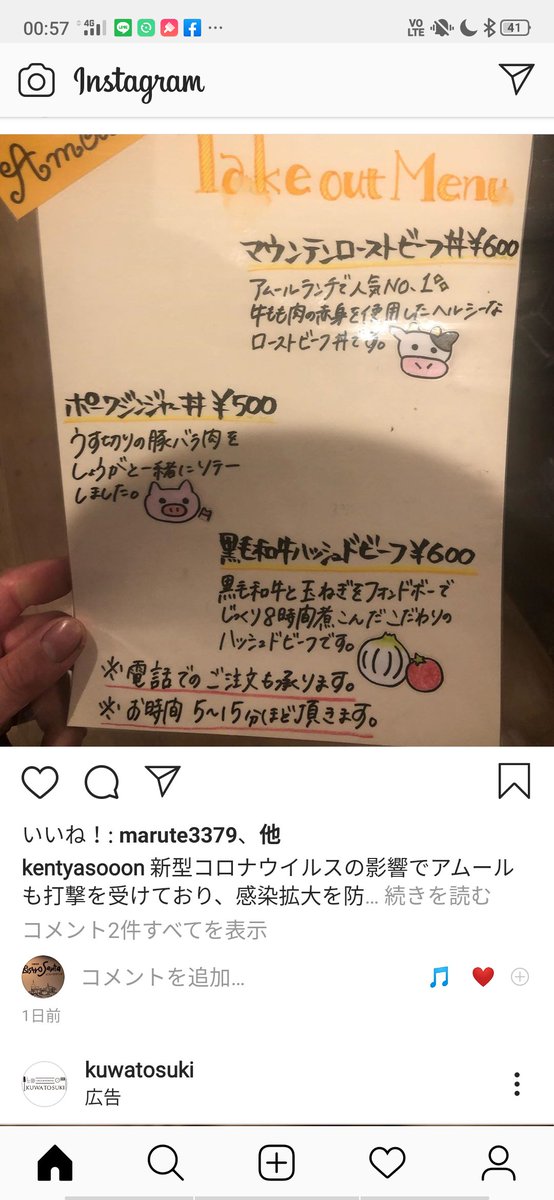 00:57
4G
LINE
VO
LTE
41
Instagram
Take out Menu
マウンテンローストビーフ丼¥600
アムールランチで人気NO、1の
牛もも肉の赤身を使用したヘルシーな
ローストビーフ丼です。
ポークジンジャー丼¥500
うす切りの豚バラ肉を
しょうがと一緒にソテー
しました。
黒毛和牛ハッシュドビーフ¥600
黒毛和牛と玉ねぎをフォンドボーで
じっくり8時間煮こんだこだわりの
ハッシュドビーフです。
※電話でのご注文も承ります。
※お時間5〜15分ほど頂きます。
いいね!: marute3379、他
kentyasooon 新型コロナウイルスの影響でアムール
も打撃を受けており、感染拡大を防... 続きを読む
コメント2件すべてを表示
コメントを追加...
1日前
kuwatosuki
KUWATOSUKI
広告